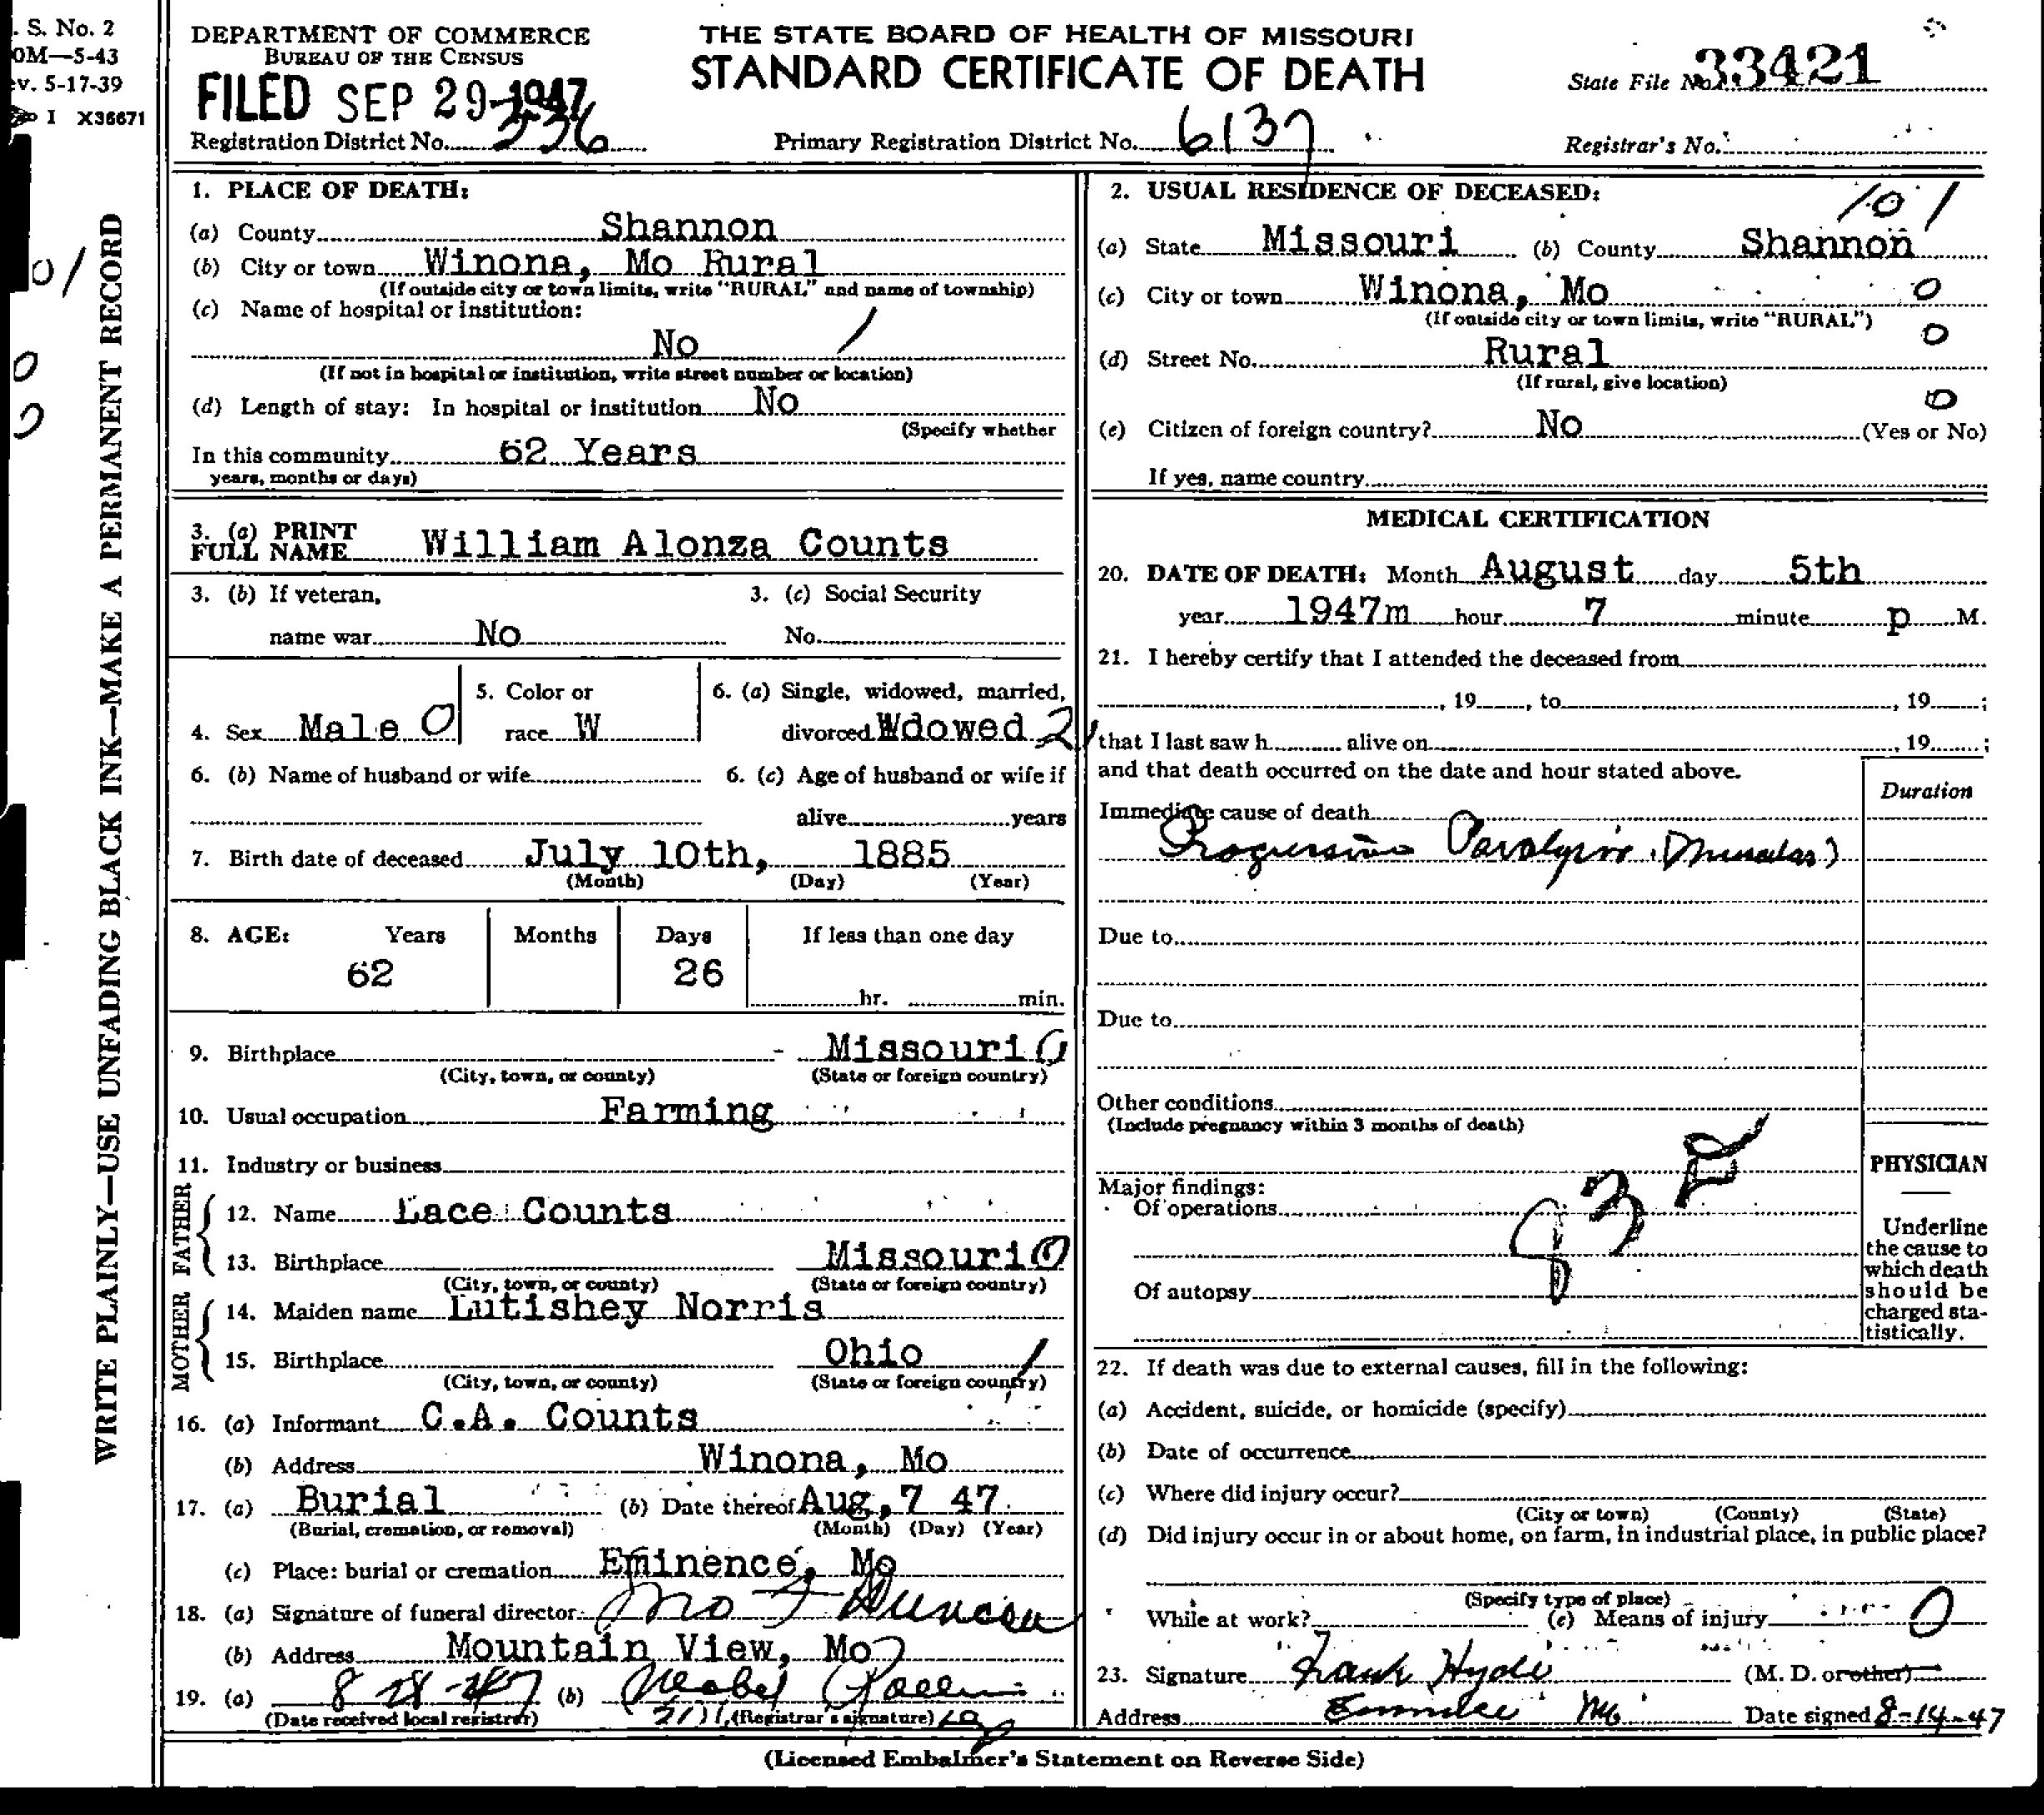 . S. No. 2
0M—5-43
ev. 5-17-39
I X36671
WRITE PLAINLY—USE UNFADING BLACK INK—MAKE A PERMANENT RECORD
DEPARTMENT OF COMMERCE
BUREAU OF THE CENSUS
FILED SEP 29 1947
Registration District No. 336
THE STATE BOARD OF HEALTH OF MISSOURI
STANDARD CERTIFICATE OF DEATH
Primary Registration District No. 6137
State File No. 33421
Registrar's No.
1. PLACE OF DEATH:
(a) County Shannon
(b) City or town Winona, Mo Rural
(If outside city or town limits, write "RURAL" and name of township)
(c) Name of hospital or institution:
No /
(If not in hospital or institution, write street number or location)
(d) Length of stay: In hospital or institution No
(Specify whether
In this community 62 Years
years, months or days)
3. (a) PRINT
FULL NAME William Alonza Counts
3. (b) If veteran,
name war No
3. (c) Social Security
No.
4. Sex Male 0
5. Color or
race W
6. (a) Single, widowed, married,
divorced Wdowed 2
6. (b) Name of husband or wife
6. (c) Age of husband or wife if
alive years
7. Birth date of deceased July 10th, 1885
(Month) (Day) (Year)
8. AGE: Years Months Days If less than one day
62 26
hr. min.
9. Birthplace - Missouri 0
(City, town, or county) (State or foreign country)
10. Usual occupation Farming
11. Industry or business
FATHER
12. Name Lace Counts
13. Birthplace Missouri 0
(City, town, or county) (State or foreign country)
MOTHER
14. Maiden name Lutishey Norris
15. Birthplace Ohio /
(City, town, or county) (State or foreign country)
16. (a) Informant C.A. Counts
(b) Address Winona, Mo
17. (a) Burial (b) Date thereof Aug, 7 47
(Burial, cremation, or removal) (Month) (Day) (Year)
(c) Place: burial or cremation Eminence, Mo
18. (a) Signature of funeral director Duncan
(b) Address Mountain View, Mo
19. (a) 8 28-47 (b) Mabel
(Date received local registrar) (Registrar's signature)
2. USUAL RESIDENCE OF DECEASED:
101
(a) State Missouri (b) County Shannon
(c) City or town Winona, Mo 0
(If outside city or town limits, write "RURAL")
0
(d) Street No. Rural
(If rural, give location)
0
(e) Citizen of foreign country? No (Yes or No)
If yes, name country
MEDICAL CERTIFICATION
20. DATE OF DEATH: Month August day 5th
year 1947m hour 7 minute p M.
21. I hereby certify that I attended the deceased from
, 19 , to , 19 ;
that I last saw h alive on , 19 ;
and that death occurred on the date and hour stated above.
Duration
Immediate cause of death
Progressive Paralysis (Muscular)
Due to
Due to
Other conditions
(Include pregnancy within 3 months of death)
Major findings:
Of operations
Of autopsy
PHYSICIAN
Underline
the cause to
which death
should be
charged sta-
tistically.
22. If death was due to external causes, fill in the following:
(a) Accident, suicide, or homicide (specify)
(b) Date of occurrence
(c) Where did injury occur?
(City or town) (County) (State)
(d) Did injury occur in or about home, on farm, in industrial place, in public place?
(Specify type of place)
While at work? (e) Means of injury 0
23. Signature Frank Hyde (M. D. or other)
Address Eminence Mo Date signed 8-14-47
(Licensed Embalmer's Statement on Reverse Side)